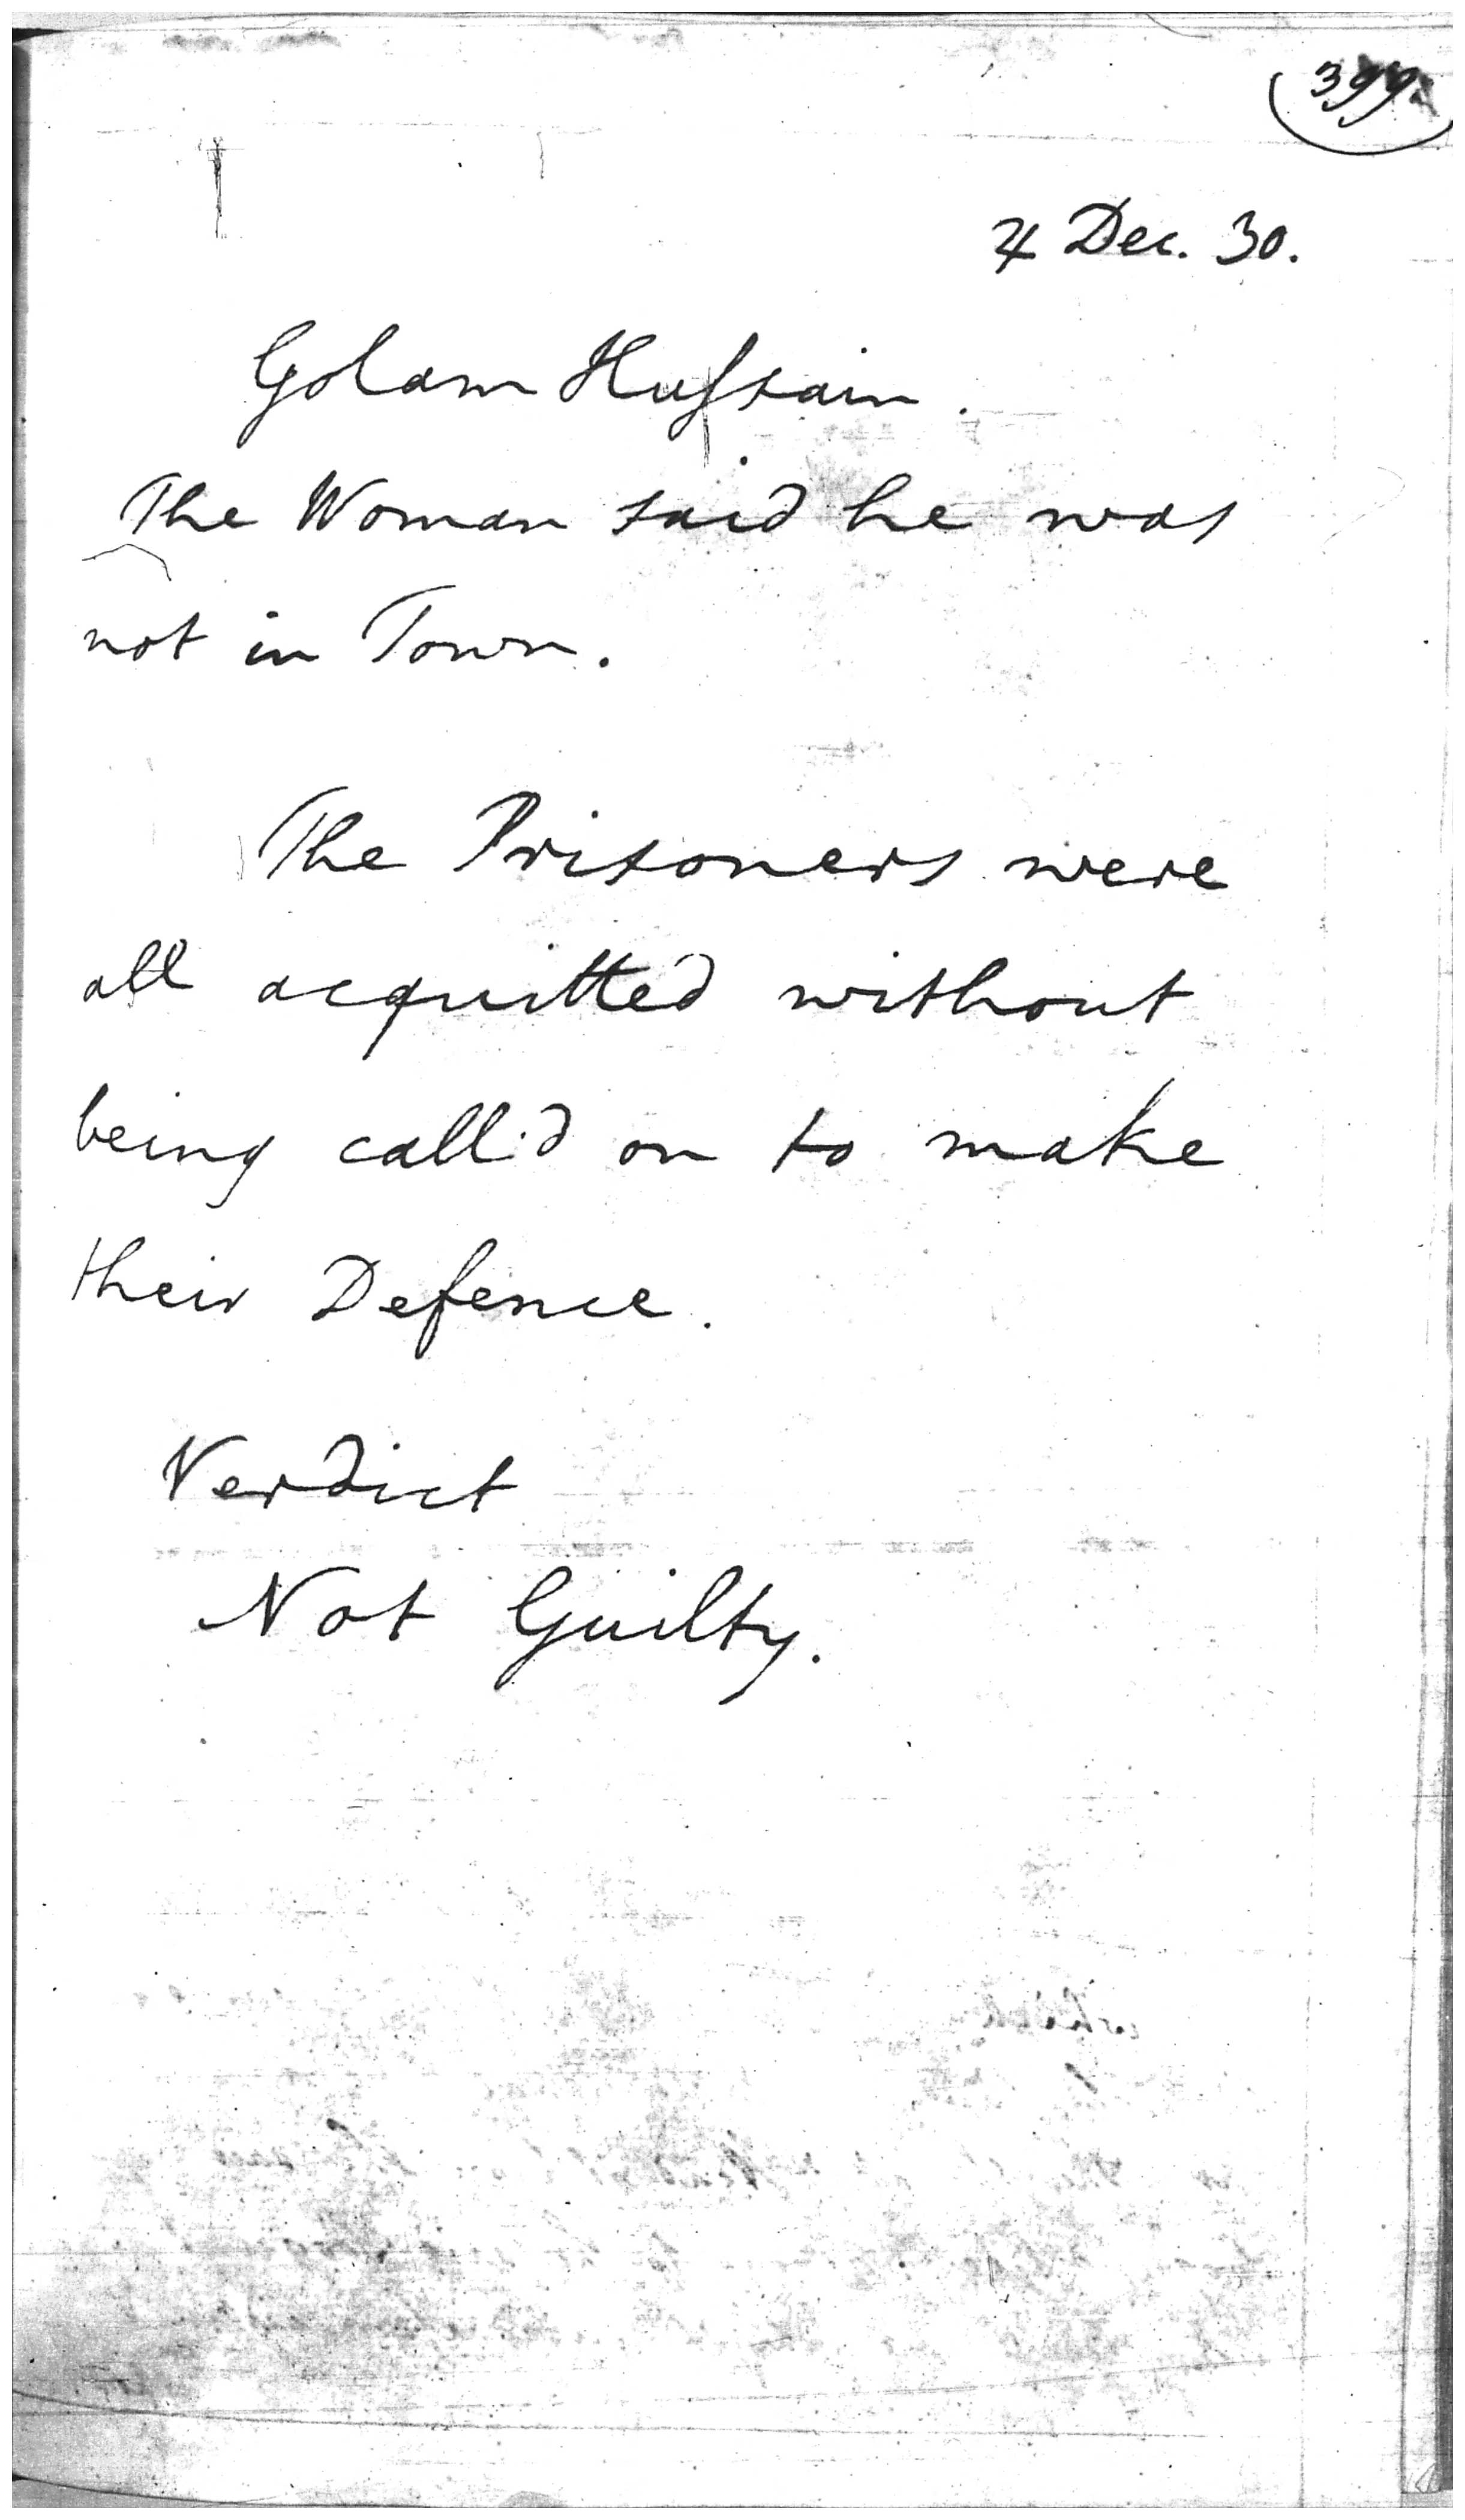 399
4 Dec. 30.
Golam Hussain.
The Woman said he was
not in Town.
The Prisoners were
all acquitted without
being call'd on to make
their Defence.
Verdict
Not Guilty.